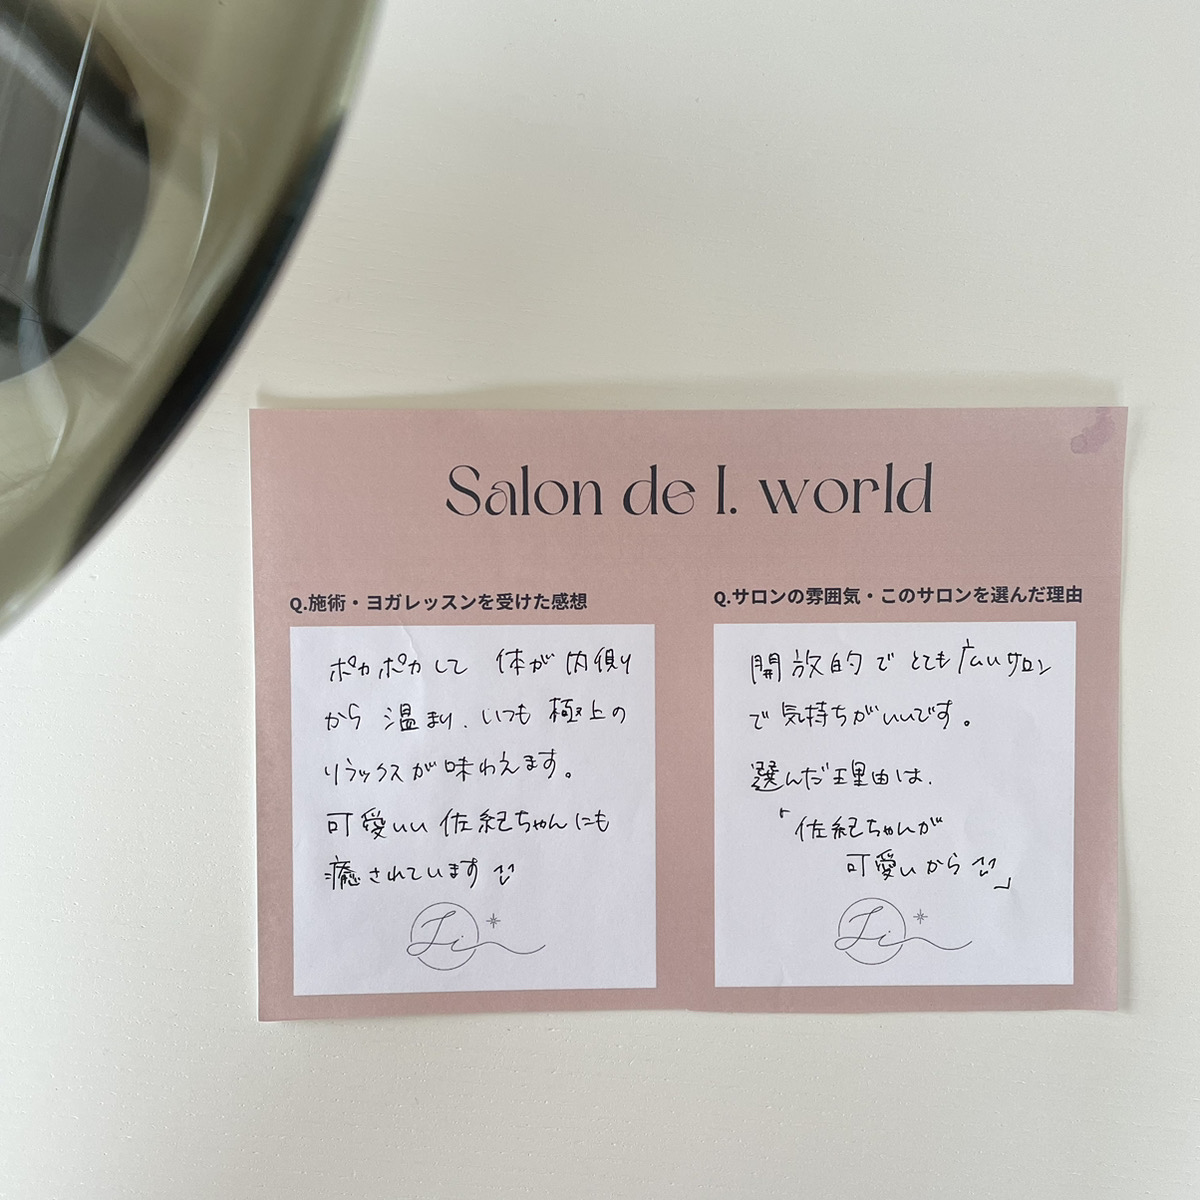 Salon de I. world
Q.施術・ヨガレッスンを受けた感想
ポカポカして 体が内側
から 温まり、いつも 極上の
リラックスが味わえます。
可愛いい 佐紀ちゃんにも
癒されています
Li
Q.サロンの雰囲気・このサロンを選んだ理由
開放的で とても広いサロン
で 気持ちがいいです。
選んだ理由は、
「佐紀ちゃんが
可愛いから」
Li